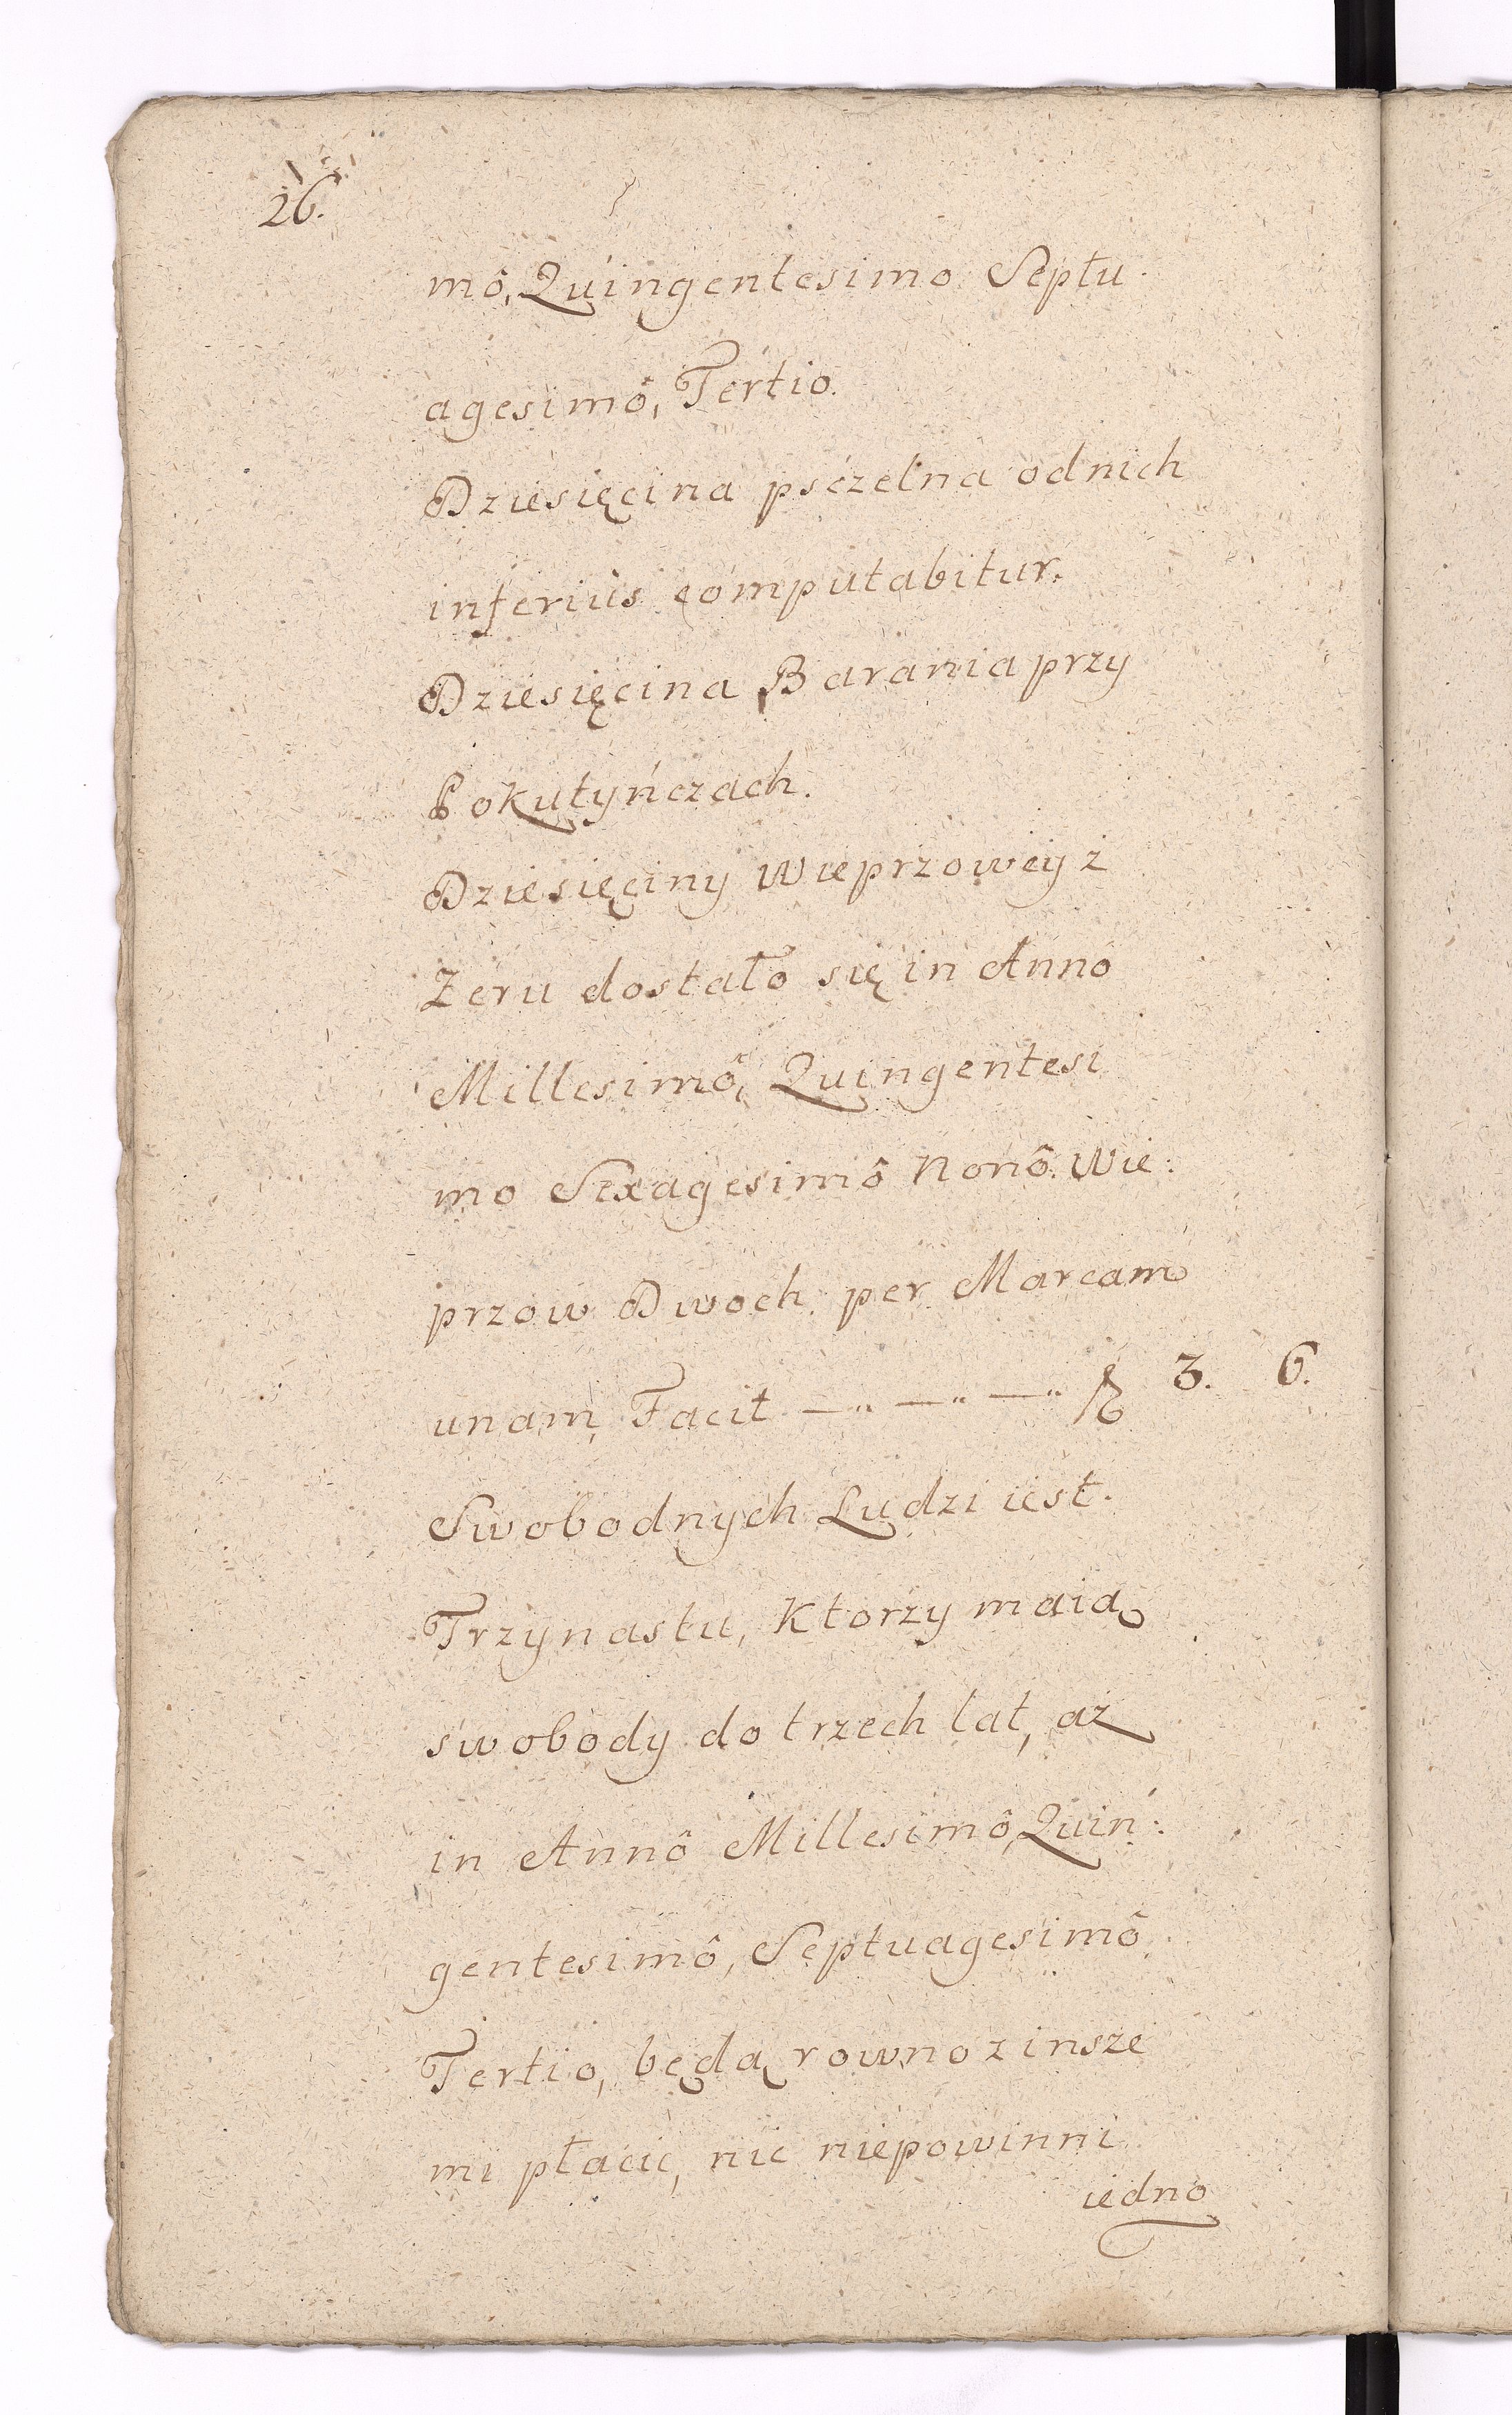 26.
mô, Quingentesimo Septu
agesimô, Tertio.
Dziesięcina psczelna odnich
inferius computabitur.
Dziesięcina Barania przy
Pokutyńczach.
Dziesięciny Wieprzowey z
Zeru dostało się in Anno
Millesimô, Quingentesi
mo Sexagesimô Nonô. Wie:
przow Dwoch per Marcam
unam Facit —" —" —" 3. 6.
Swobodnych Ludzi iest.
Trzynastu, Ktorzy maią
swobody do trzech lat, aż
in Annô Millesimô, Quin:
gentesimô, Septuagesimô
Tertio, będą rowno z insze
mi płacic, nic niepowinni
iedno